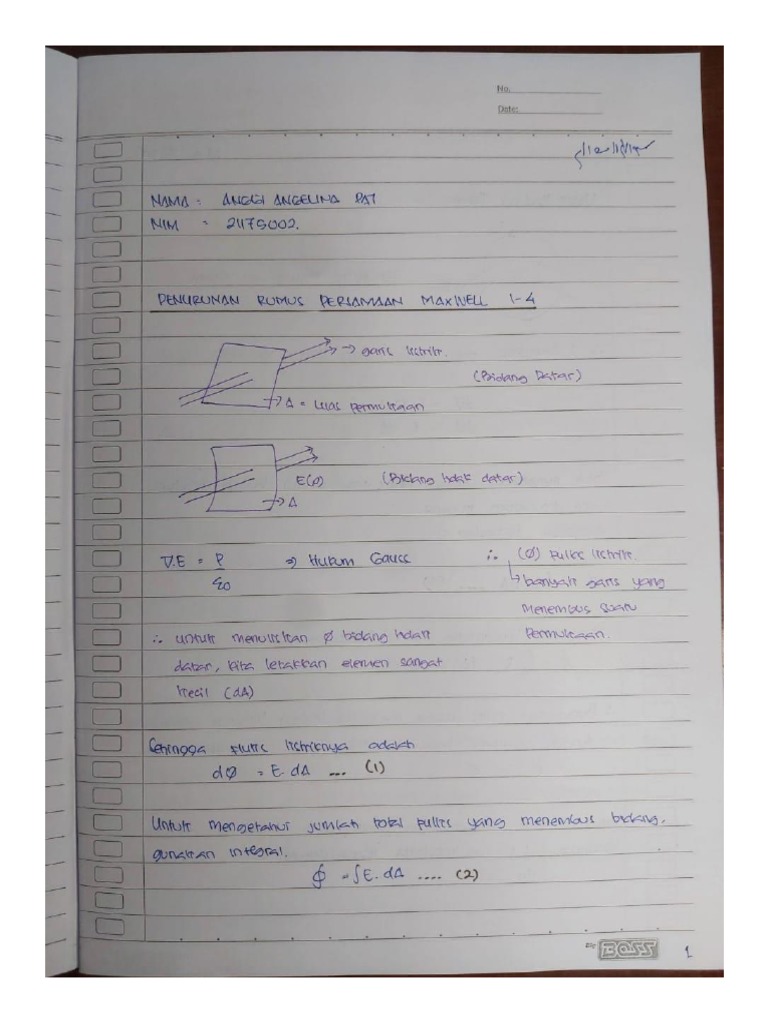 No.
Date:
NAMA : ANGGI ANGELINA PAT
NIM = 21175002.
PENURUNAN RUMUS PERSAMAAN MAXWELL 1-4
→ garis listrik.
(Bidang Datar)
→ A = luas permukaan
E(ø) (Bidang tidak datar)
→ A
∇.E = ρ/ε0 ⇒ Hukum Gauss ∴ (Ø) fulks listrik.
↳ banyak garis yang
menembus suatu
permukaan.
∴ untuk menuliskan ø bidang tidak
datar, kita letakkan elemen sangat
kecil (dA)
Sehingga fluks listriknya adalah
dØ = E.dA ... (1)
Untuk mengetahui jumlah total fulks yang menembus bidang.
gunakan integral.
∮ = ∫E.dA .... (2)
Big BOSS
1